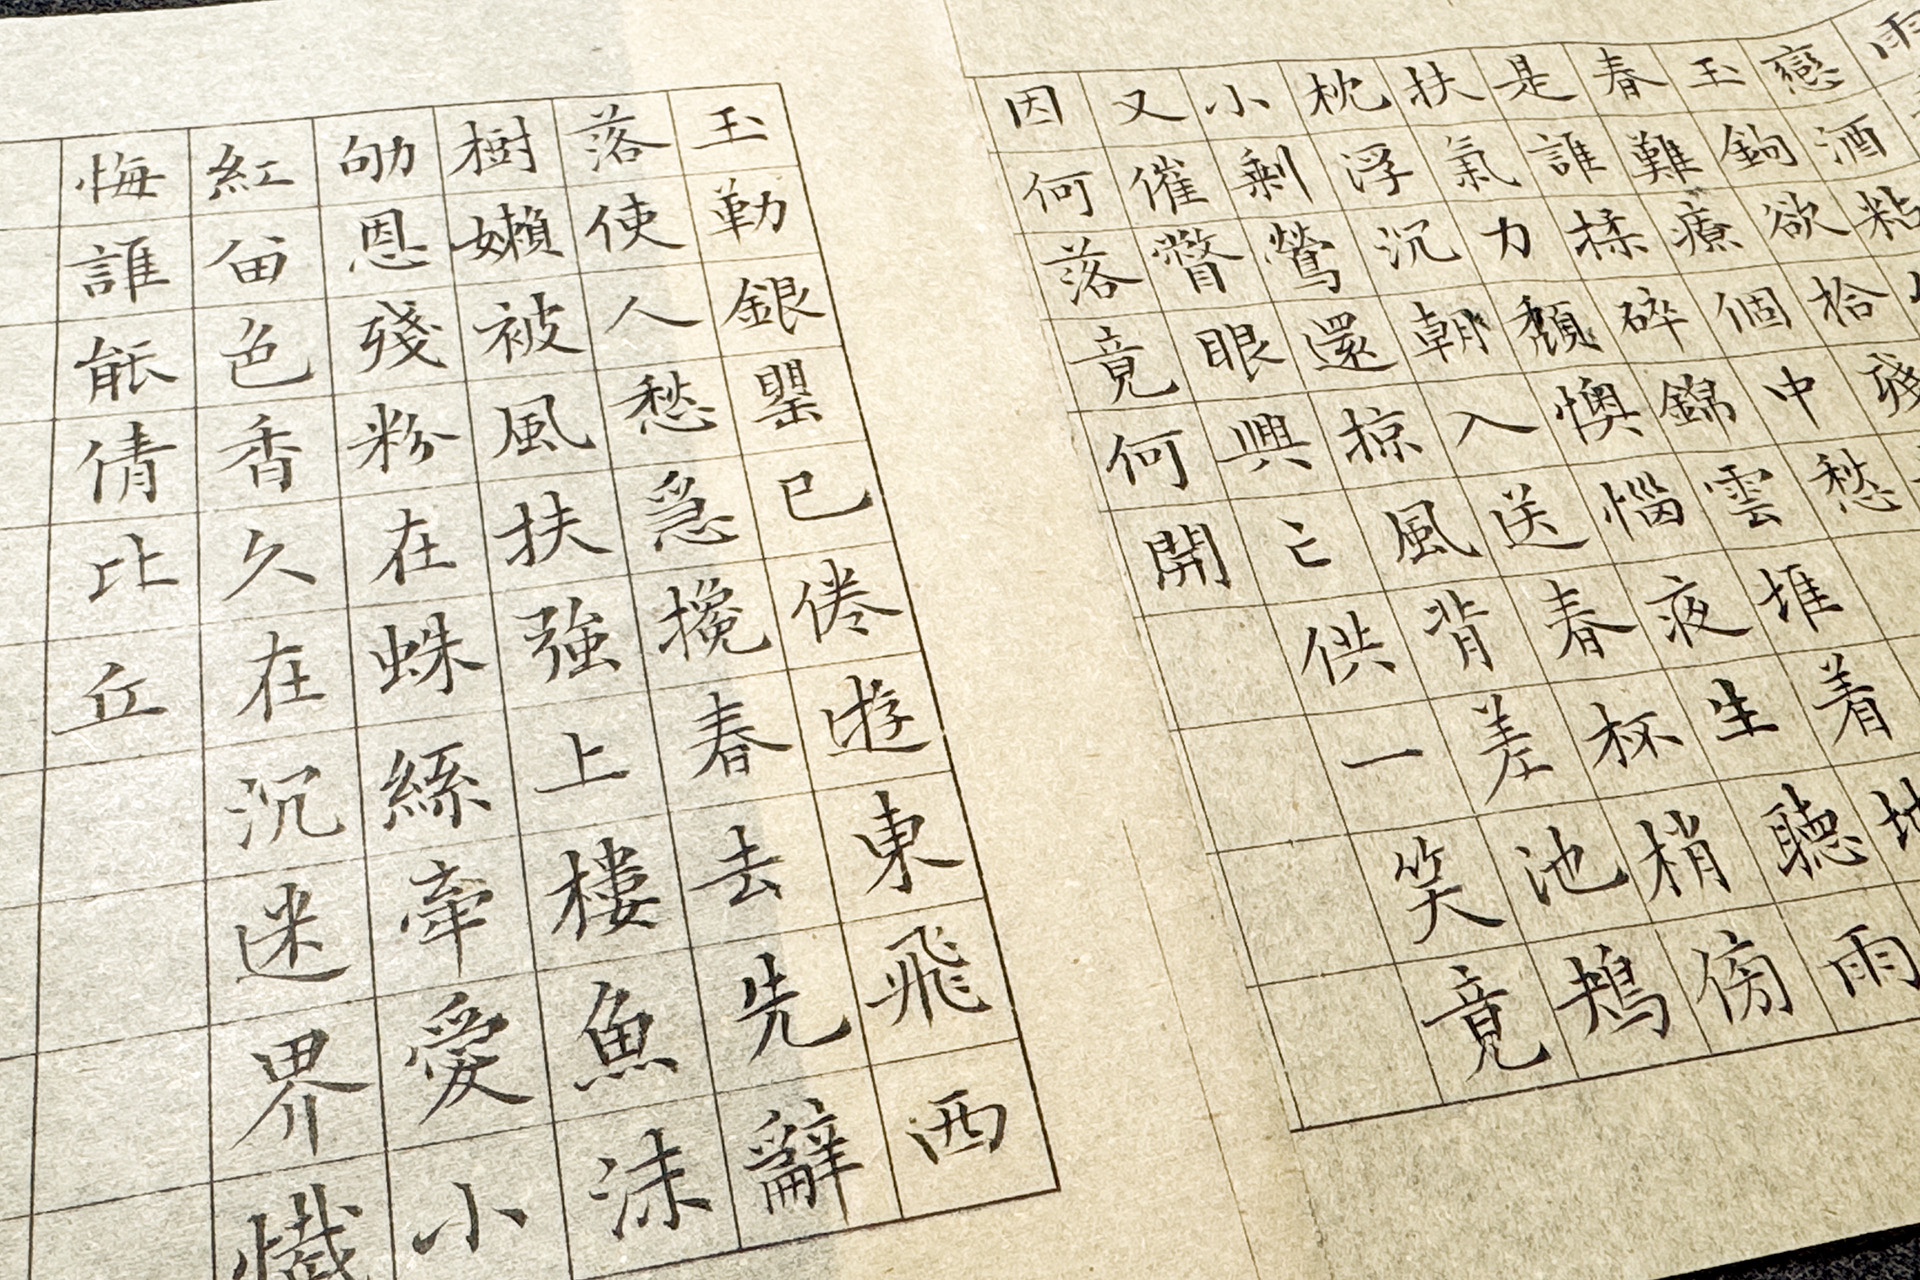 雨
戀酒粘
玉鉤欲拾殘
春難療個中愁
是誰揉碎錦雲堆着地
扶氣力頹懊惱夜生聽雨
枕浮沉朝入送春杯梢傍
小剩鶯還掠風背差池鴂
又催瞥眼興亡供一笑竟
因何落竟何開
玉勒銀罌已倦遊東飛西
落使人愁急攙春去先辭
樹嬾被風扶強上樓魚沫
劬恩殘粉在蛛絲牽愛小
紅畱色香久在沉迷界懺
悔誰能倩比丘